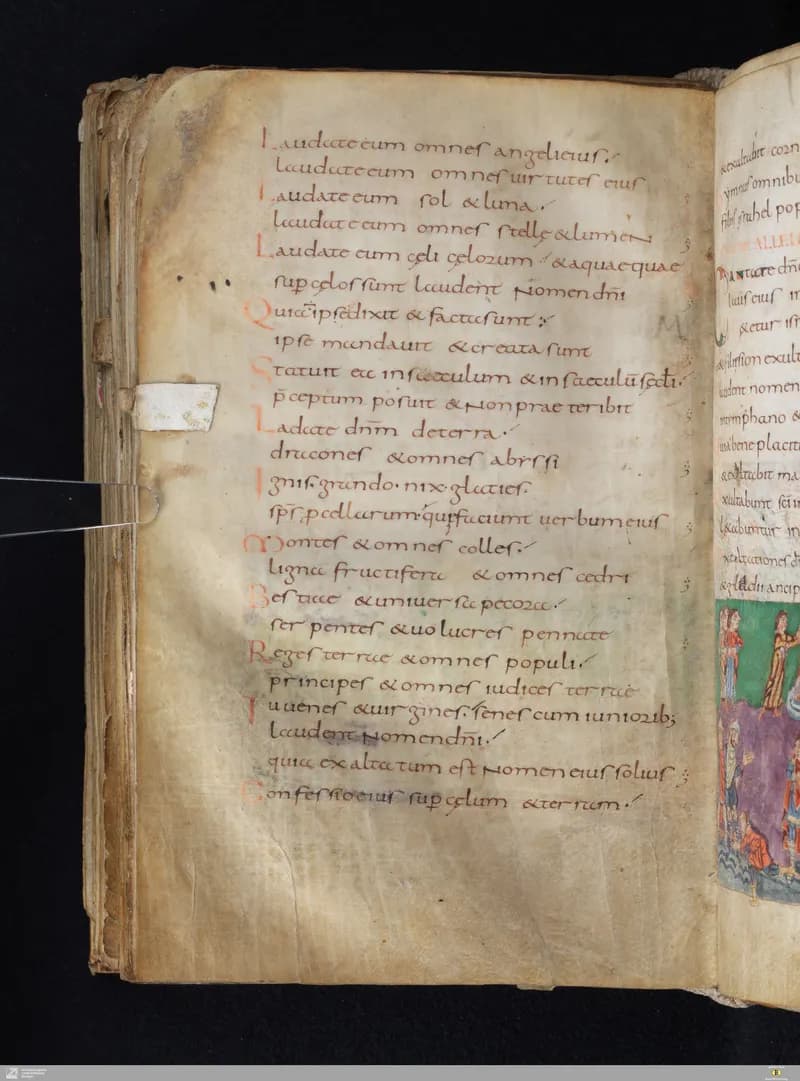 Laudate eum omnes angeli eius.
laudate eum omnes uirtutes eius
Laudate eum sol & luna.
laudate eum omnes stellę & lumen
Laudate eum cęli cęlorum & aquae quae
sup cęlos sunt laudent Nomen dñi
Quia ipse dixit & facta sunt
ipse mandauit & creata sunt
Statuit ea in saeculum & in saeculū sęcli.
p̄ceptum posuit & Non praeteribit
Ladate dnm̄ de terra.
dracones & omnes abyssi
Ignis. grando. nix. glacies.
sp̄s pcellarum. qui faciunt uerbum eius
Montes & omnes colles.
ligna fructifera & omnes cedri
Bestiae & uniuersa pecora.
serpentes & uolucres pennate
Reges terrae & omnes populi.
principes & omnes iudices terrae
Iuuenes & uirgines. senes cum iuniorib;
laudent Nomen dñi.
quia exaltatum est Nomen eius solius
Confessio eius sup cęlum & terram.
&exaltabit corn
omnibu
israhel pop
ALLEL
Cantate dñ
laus eius in
&etur isr
& filii sion exult
laudent nomen
tymphano &
bene placit
& exaltabit ma
exultabunt sc̄i in
laetabuntur in
exaltationes d
& gladii ancip